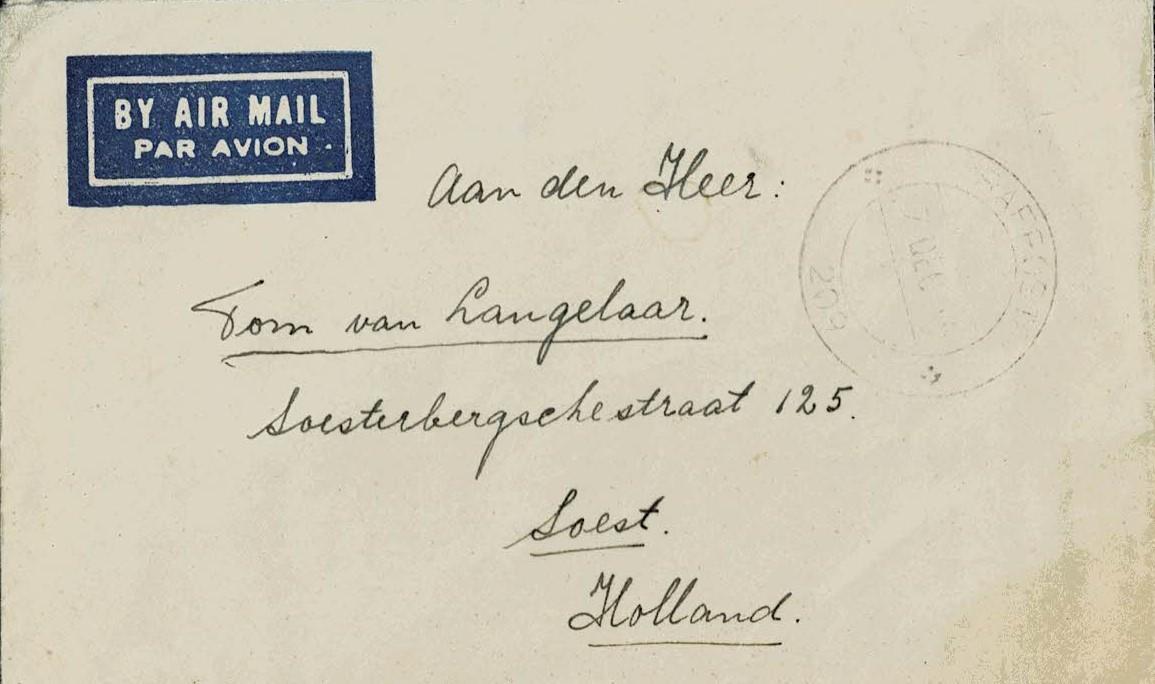 BY AIR MAIL
PAR AVION
Aan den Heer:
Tom van Langelaar.
Soesterbergschestraat 125.
Soest.
Holland.
7 DEC
209